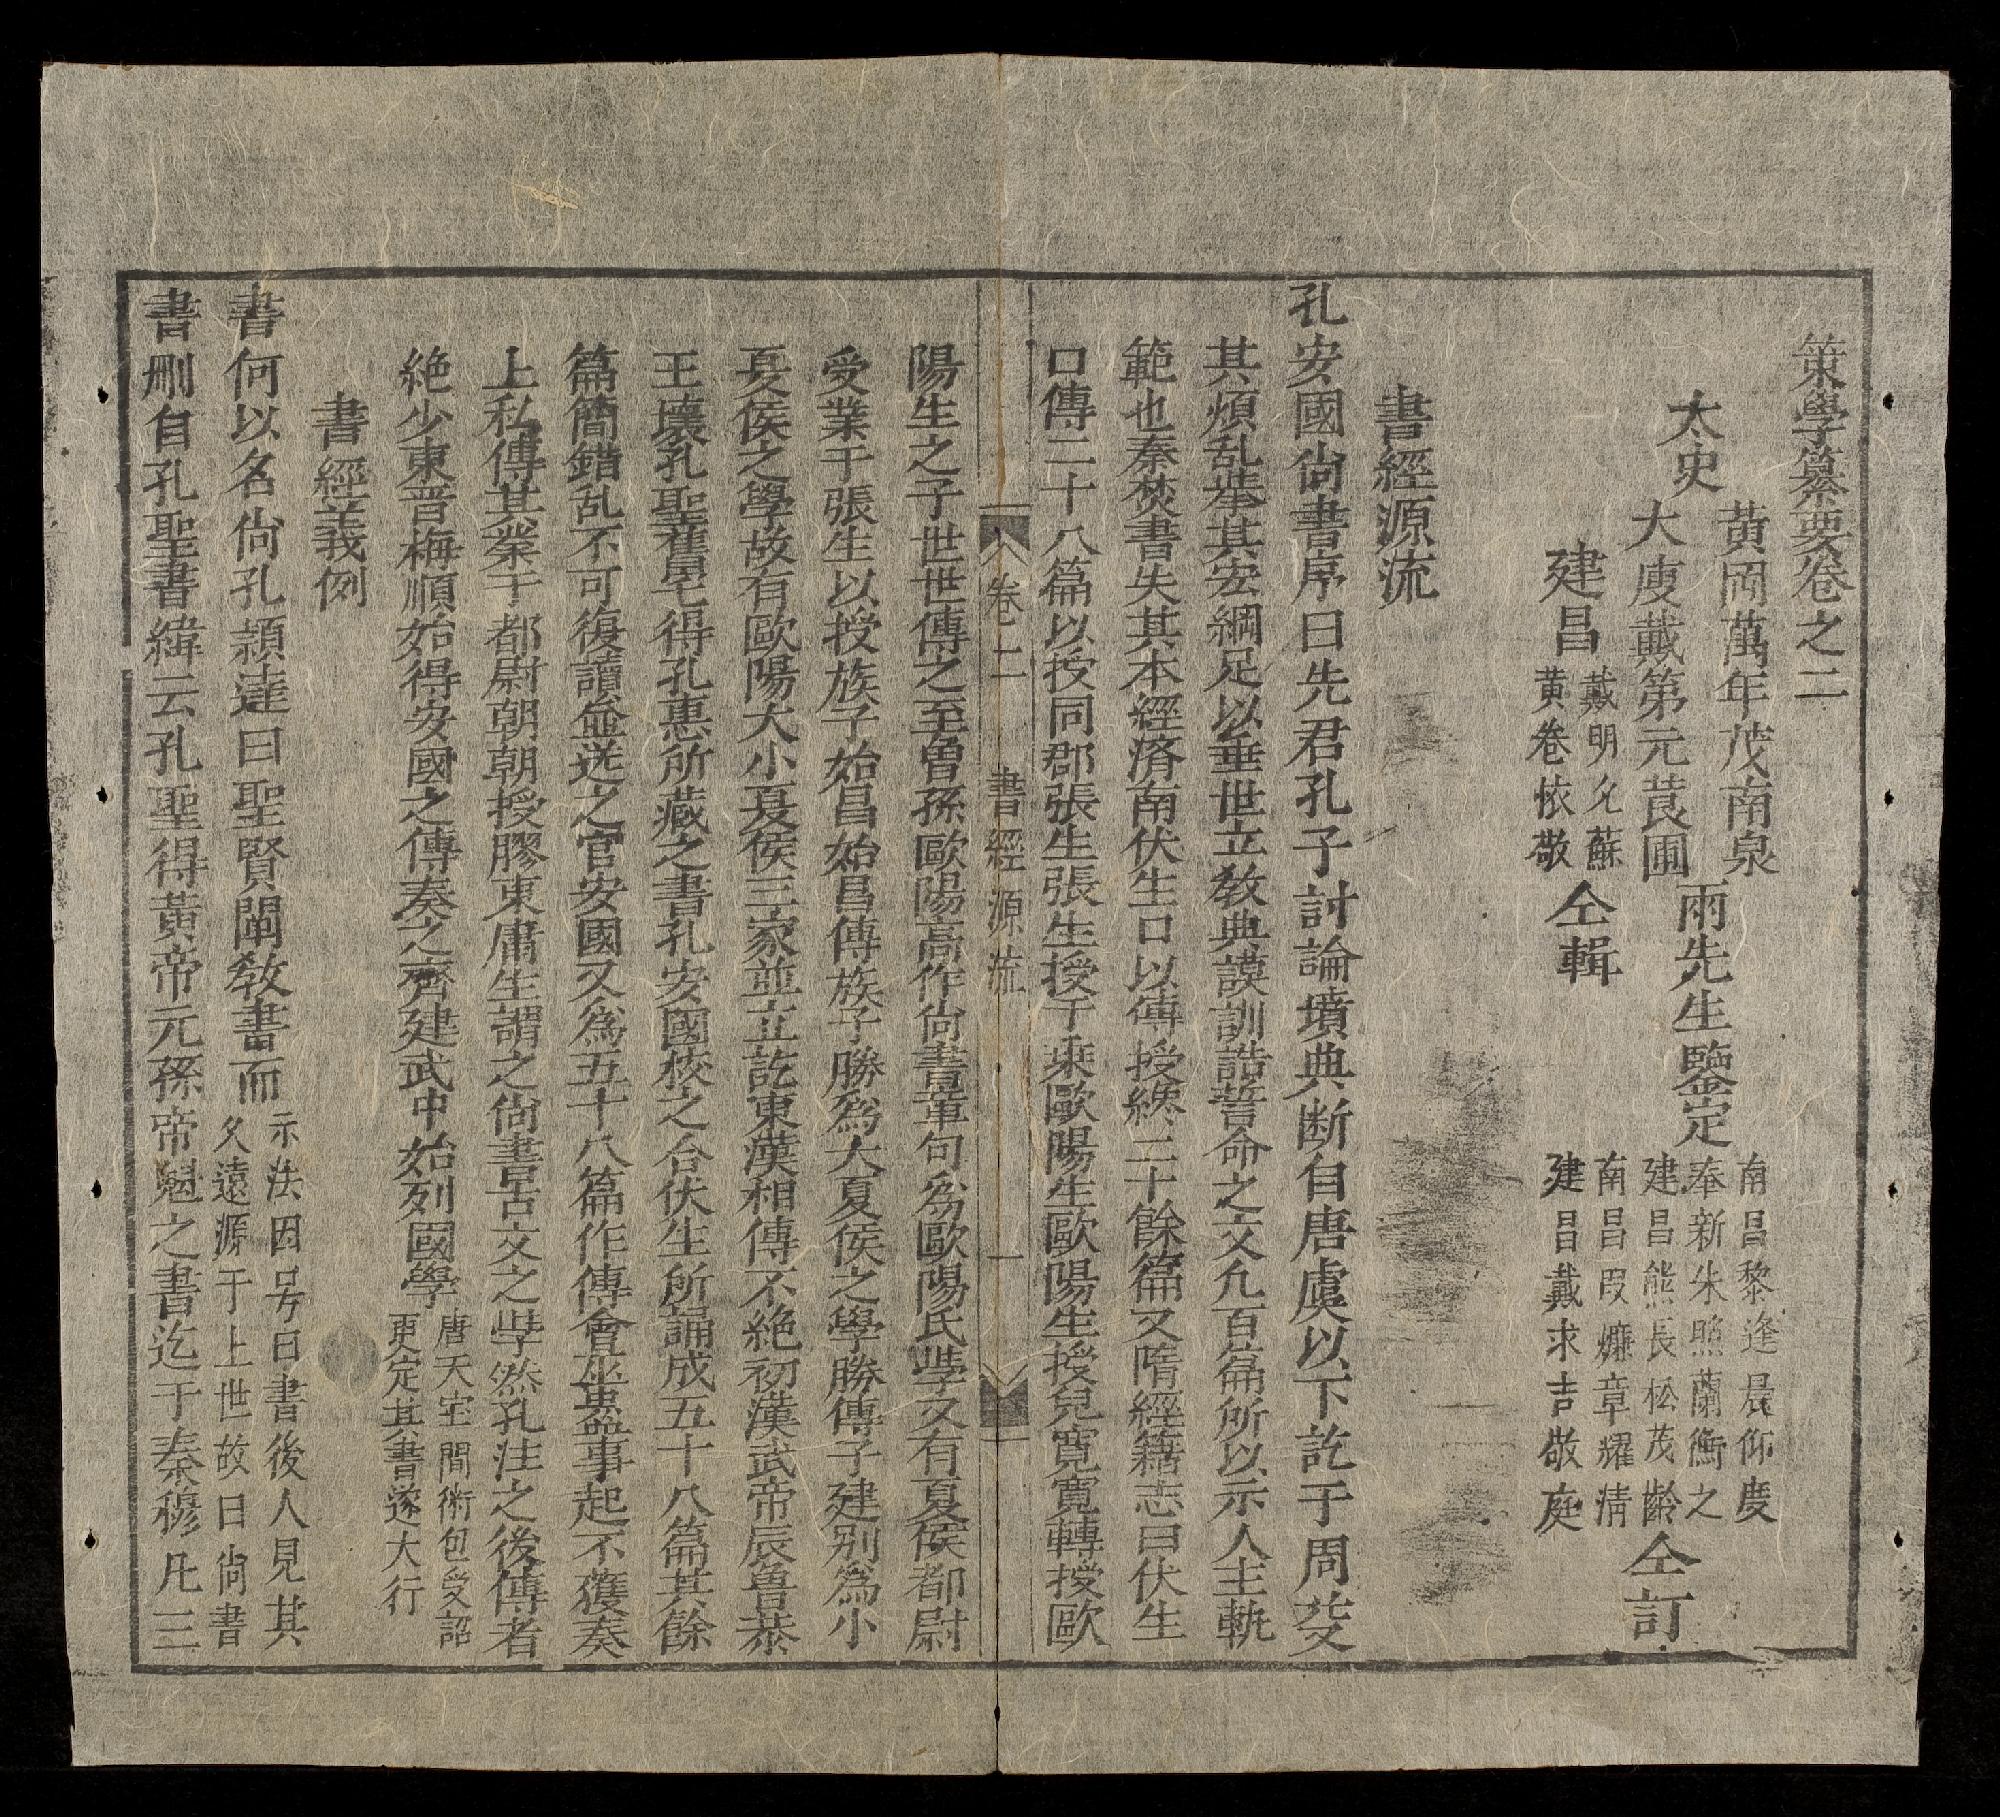 策學纂要卷之二
太史
黃岡萬年茂南泉
大庾戴第元莨圃
兩先生鑒定
南昌黎逢晨仰度
奉新朱照蘭衡之
建昌熊長松茂齡
南昌叚嫌章耀清
建昌戴求吉敬庭
仝訂
建昌
戴明允蘇
黃卷依敬
仝輯
書經源流
孔安國尙書序曰先君孔子討論墳典断自唐虞以下訖于周芟
其煩乱舉其宏綱足以垂世立教典謨訓誥誓命之文凡百篇所以示人主軌
範也秦焚書失其本經済南伏生口以傳授終二十餘篇又隋經籍志曰伏生
口傳二十八篇以授同郡張生張生授千乘歐陽生歐陽生授兒寬寬轉授歐
卷二 書經源流 一
陽生之子世世傳之至曾孫歐陽高作尙書章句爲歐陽氏學又有夏侯都尉
受業于張生以授族子始昌始昌傳族子勝爲大夏侯之學勝傳子建别爲小
夏侯之學故有歐陽大小夏侯三家並立訖東漢相傳不絶初漢武帝辰魯恭
王壞孔聖舊宅得孔惠所藏之書孔安國校之合伏生所誦成五十八篇其餘
篇簡錯乱不可復讀並送之官安國又爲五十八篇作傳會巫蠱事起不獲奏
上私傳其業于都尉朝朝授膠東庸生謂之尙書古文之學然孔注之後傳者
絶少東晋梅順始得安國之傳奏之齊建武中始列國學唐天宝間術包受詔
更定其書遂大行
書經義例
書何以名尙孔頴達曰聖賢闡教書而示法因号曰書後人見其
久遠源于上世故曰尙書
書刪自孔聖書緯云孔聖得黃帝元孫帝魁之書迄于秦穆凡三